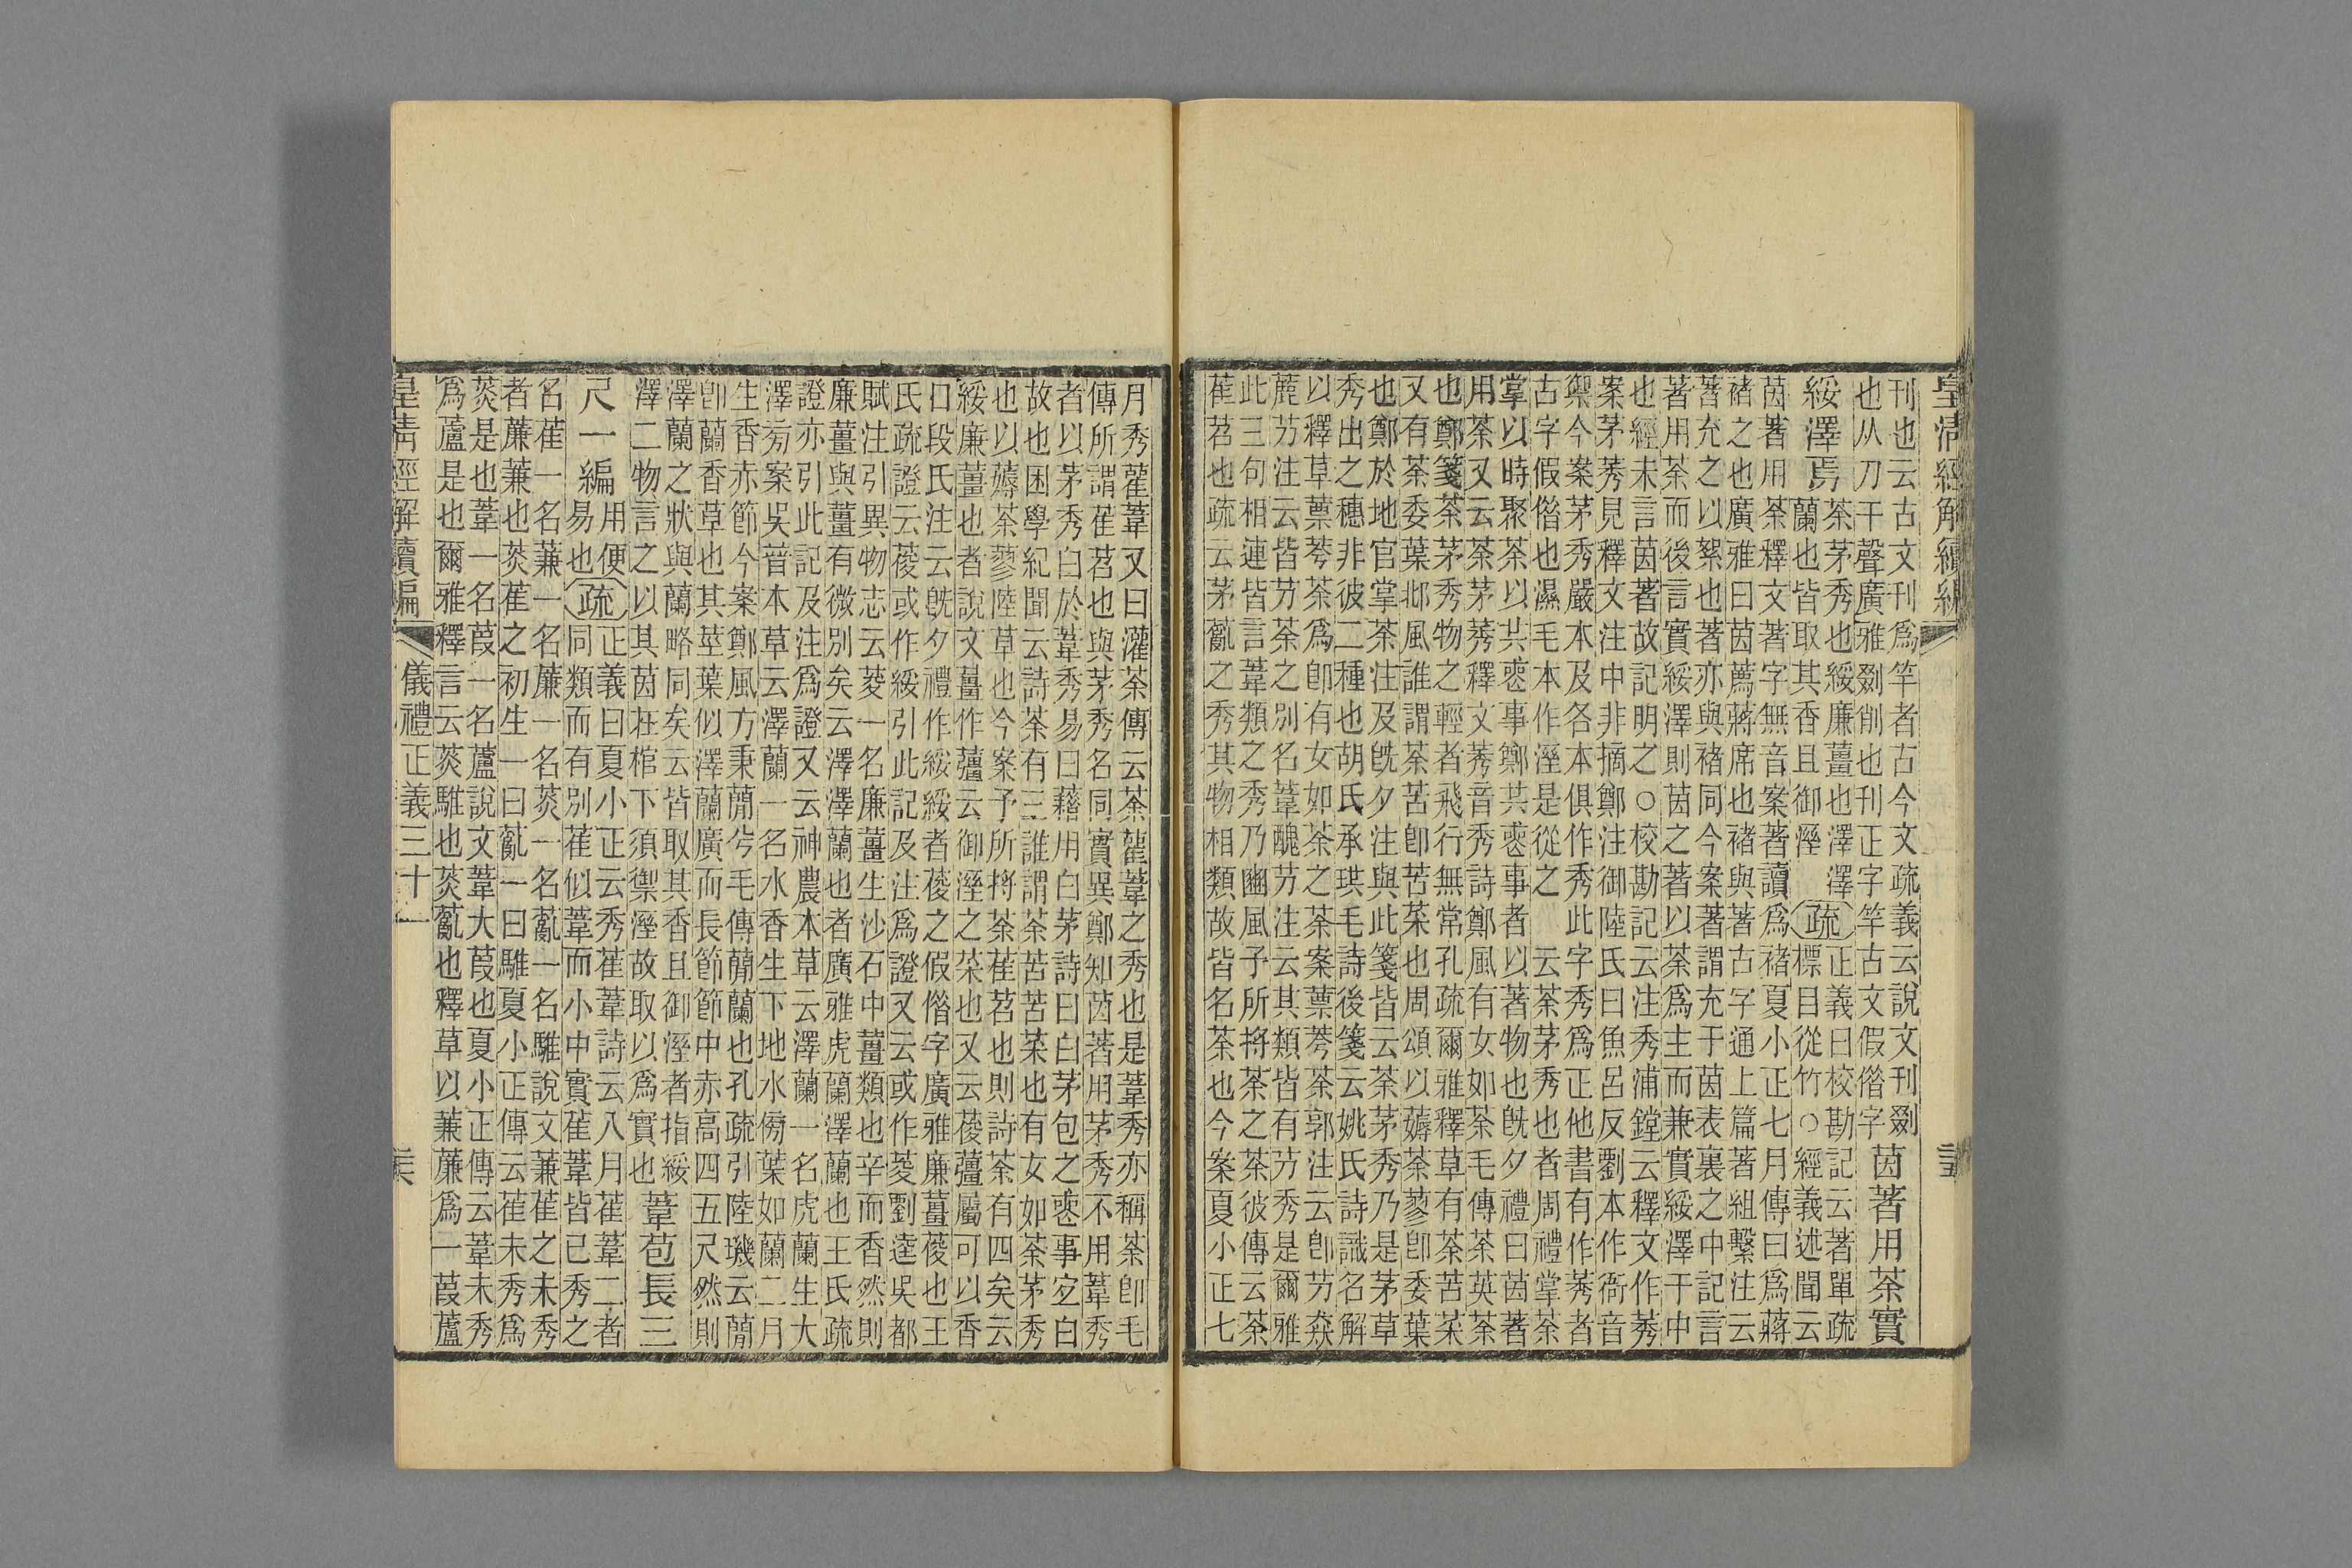 皇清經解續編
刊也云古文刊爲竿者古今文疏義云說文刊剟
也从刀干聲廣雅剟削也刊正字竿古文假偕字
茵著用荼實
綏澤焉
荼茅秀也綏廉薑也澤澤
蘭也皆取其香且御溼
疏
正義曰校勘記云著單疏
標目從竹○經義述聞云
茵著用荼釋文著字無音案著讀爲褚夏小正七月傳曰爲蔣
褚之也廣雅曰茵薦蔣席也褚與著古字通上篇著組繫注云
著充之以絮也著亦與褚同今案著謂充于茵表裏之中記言
著用荼而後言實綏澤則茵之著以荼爲主而兼實綏澤于中
也經未言茵著故記明之○校勘記云注秀浦鏜云釋文作莠
案茅莠見釋文注中非摘鄭注御陸氏曰魚呂反劉本作衙音
禦今案茅秀嚴本及各本俱作秀此字秀爲正他書有作莠者
古字假偕也濕毛本作溼是從之　云荼茅秀也者周禮掌荼
掌以時聚荼以共喪事鄭共喪事者以著物也旣夕禮曰茵著
用荼又云荼茅莠釋文莠音秀詩鄭風有女如荼毛傳荼英荼
也鄭箋荼茅秀物之輕者飛行無常孔疏爾雅釋草有荼苦菜
又有荼委葉邶風誰謂荼苦卽苦菜也周頌以薅荼蓼卽委葉
也鄭於地官掌荼注及旣夕注與此箋皆云荼茅秀乃是茅草
秀出之穗非彼二種也胡氏承珙毛詩後箋云姚氏詩識名解
以釋草葉荂荼爲卽有女如荼之荼案蔈荂荼郭注云卽芀猋
藨芀注云皆芀荼之別名葦醜芀注云其類皆有芀秀是爾雅
此三句相連皆言葦類之秀乃豳風予所捋荼之荼彼傳云荼
萑苕也疏云茅薍之秀其物相類故皆名荼也今案夏小正七
月秀雚葦又曰灌荼傳云荼雚葦之秀也是葦秀亦稱荼卽毛
傳所謂萑苕也與茅秀名同實異鄭知茵著用茅秀不用葦秀
者以茅秀白於葦秀易曰藉用白茅詩曰白茅包之喪事宜白
故也困學紀聞云詩荼有三誰謂荼苦苦菜也有女如荼茅秀
也以薅荼蓼陸草也今案予所捋荼萑苕也則詩荼有四矣云
綏廉薑也者說文䕬作䕬云御溼之菜也又云葰䕬屬可以香
口段氏注云旣夕禮作綏綏者葰之假偕字廣雅廉薑葰也王
氏疏證云葰或作綏引此記及注爲證又云或作荾劉逵吳都
賦注引異物志云荾一名廉薑生沙石中薑類也辛而香然則
廉薑與薑有微別矣云澤澤蘭也者廣雅虎蘭澤蘭也王氏疏
證亦引此記及注爲證又云神農本草云澤蘭一名虎蘭生大
澤旁案吳普本草云澤蘭一名水香生下地水傍葉如蘭二月
生香赤節今案鄭風方秉蕑兮毛傳蕑蘭也孔疏引陸璣云蕑
卽蘭香草也其莖葉似澤蘭廣而長節節中赤高四五尺然則
澤蘭之狀與蘭略同矣云皆取其香且御溼者指綏
澤二物言之以其茵在棺下須禦溼故取以爲實也
葦苞長三
尺一編
用便
易也
疏
正義曰夏小正云秀萑葦詩云八月萑葦二者
同類而有別萑似葦而小中實萑葦皆已秀之
名萑一名蒹一名薕一名菼一名薍一名騅說文蒹萑之未秀
者薕蒹也菼萑之初生一曰薍一曰騅夏小正傳云萑未秀爲
菼是也葦一名葭一名蘆說文葦大葭也夏小正傳云葦未秀
爲蘆是也爾雅釋言云菼騅也菼薍也釋草以蒹薕爲一葭蘆
皇清經解續編　儀禮正義三十一